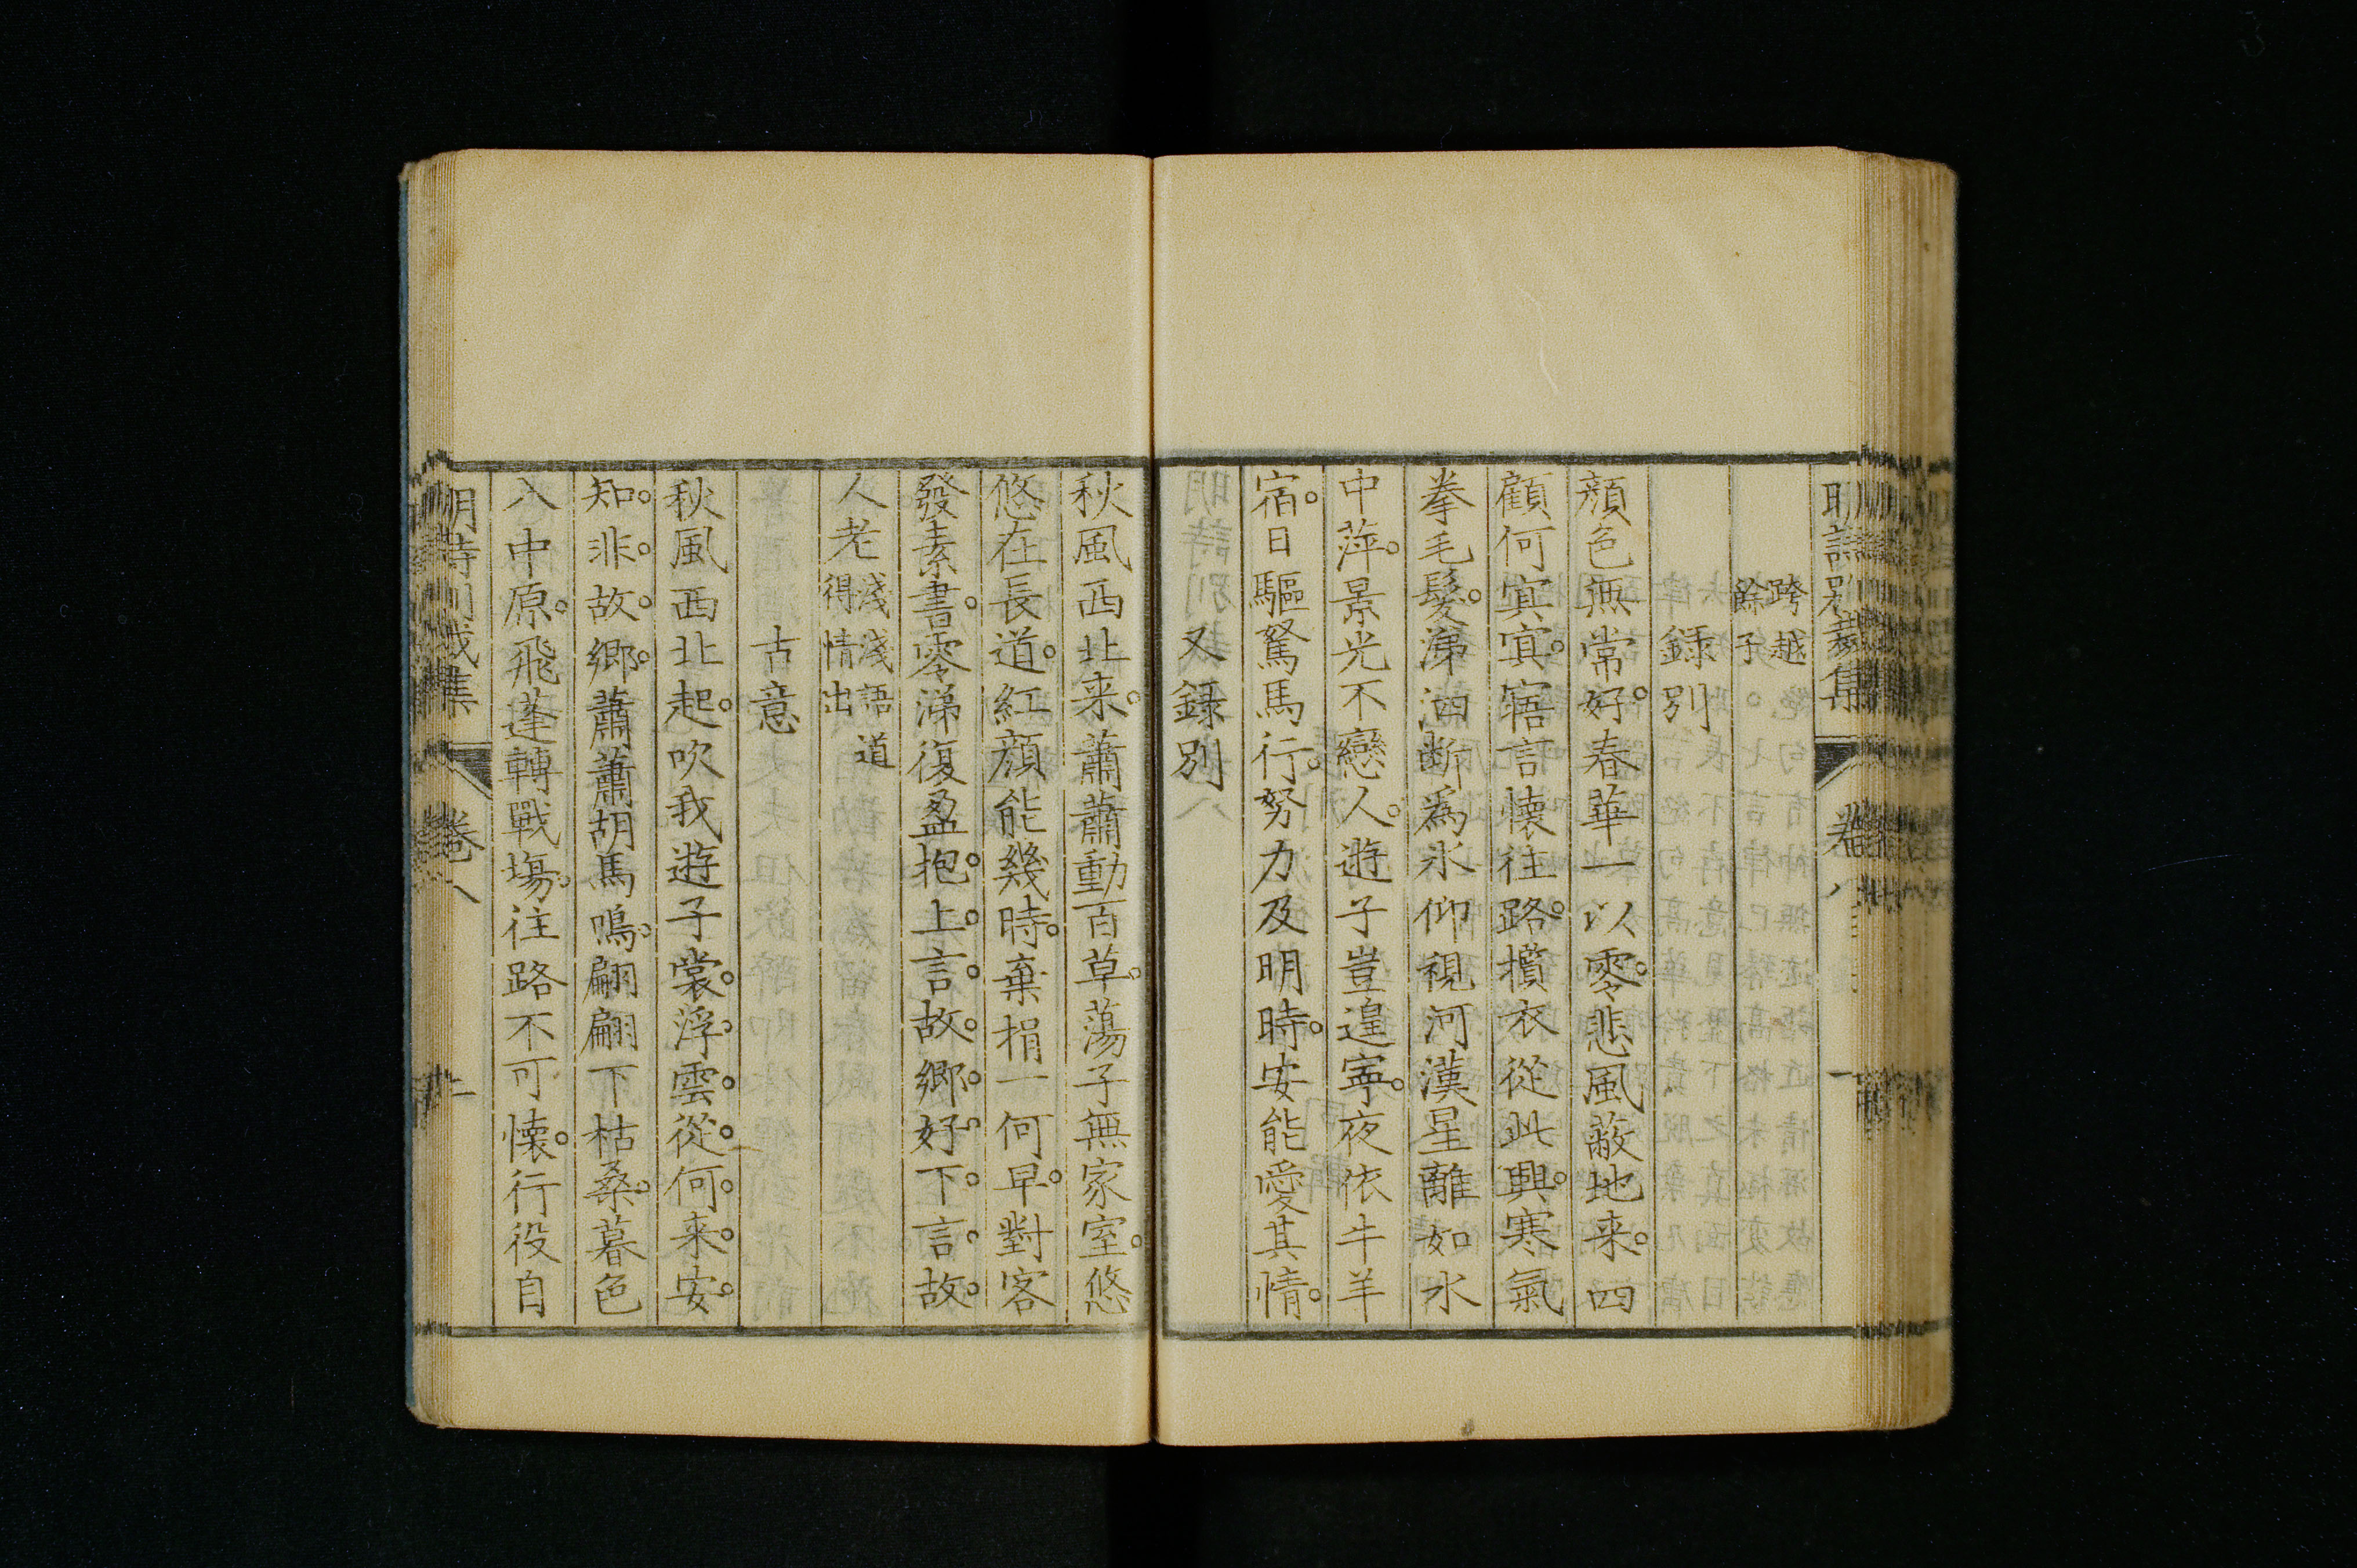 明詩別裁集 卷八
跨越
餘子
録別
顔色無常好。春華一以零。悲風蔽地来。四
顧何冥冥。寤言懐往路。攬衣從此興。寒氣
拳毛髮。涕泗断為氷仰視河漢星離如水
中萍。景光不戀人。遊子豈遑寧。夜依牛羊
宿。日驅駑馬行。努力及明時。安能愛其情。
又録別
秋風西北来。蕭蕭動百草。蕩子無家室。悠
悠在長道。紅顔能幾時。棄捐一何早。對客
發素書。零涕復盈抱。上言故鄉好。下言故
人老淺淺語道
得情出
古意
秋風西北起。吹我遊子裳。浮雲從何来。安
知非故鄉。蕭蕭胡馬鳴。翩翩下枯桑。暮色
入中原。飛蓬轉戰場。往路不可懐。行役自
明詩別裁集 卷八